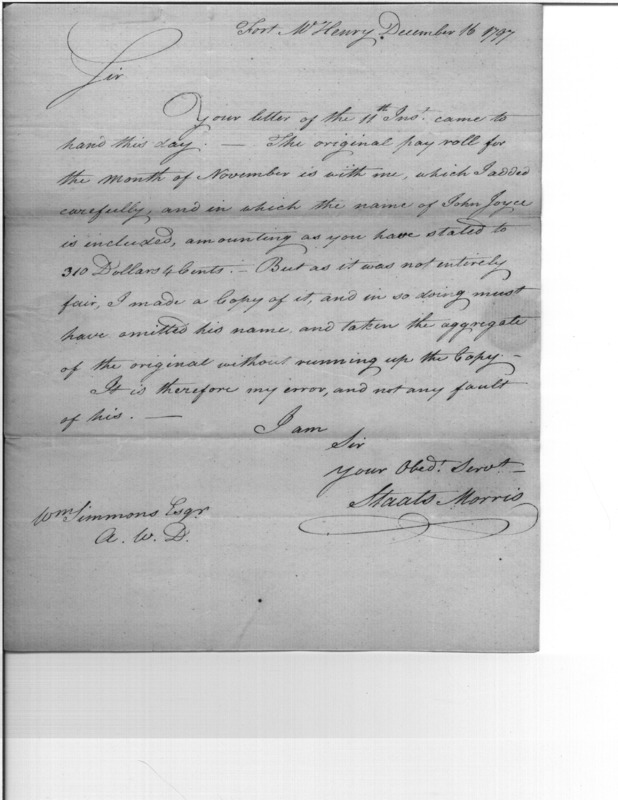 Fort McHenry December 16 1797
Sir
Your letter of the 11th Inst. came to
hand this day. — The original pay roll for
the month of November is with me, which I added
carefully, and in which the name of John Joyce
is included, amounting as you have stated to
310 Dollars 4 Cents. — But as it was not entirely
fair, I made a Copy of it, and in so doing must
have omitted his name, and taken the aggregate
of the original without running up the Copy. —
It is therefore my error, and not any fault
of his. —
I am
Sir
Your Obedt. Servt —
Staats Morris
Wm Simmons Esqr
A. W. D.